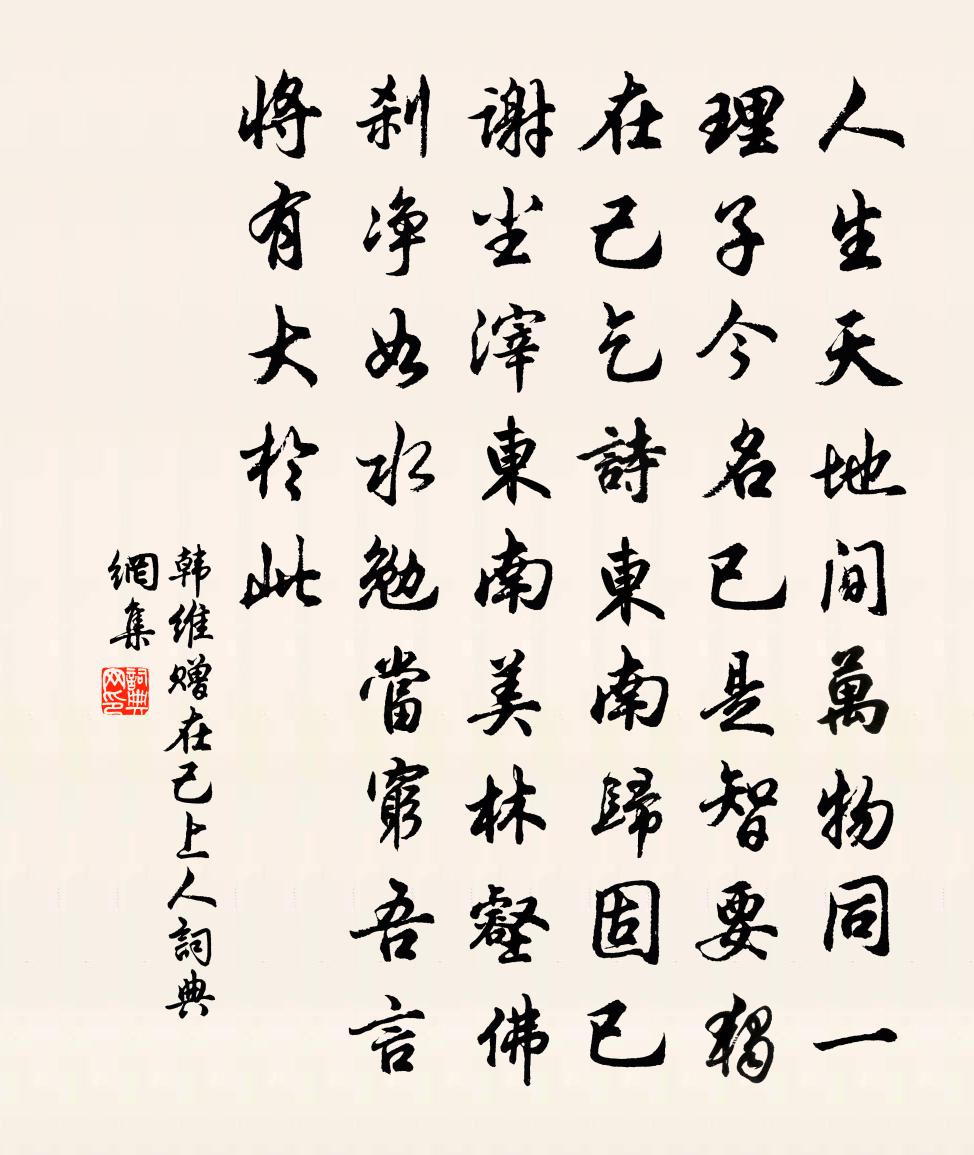 人生天地間萬物同一
理子今名已是智要獨
在己乞詩東南歸固已
謝尘滓東南美林壑佛
刹净如水勉當窮吾言
将有大於此
韩维赠在己上人詞典
網集
詞典
网印